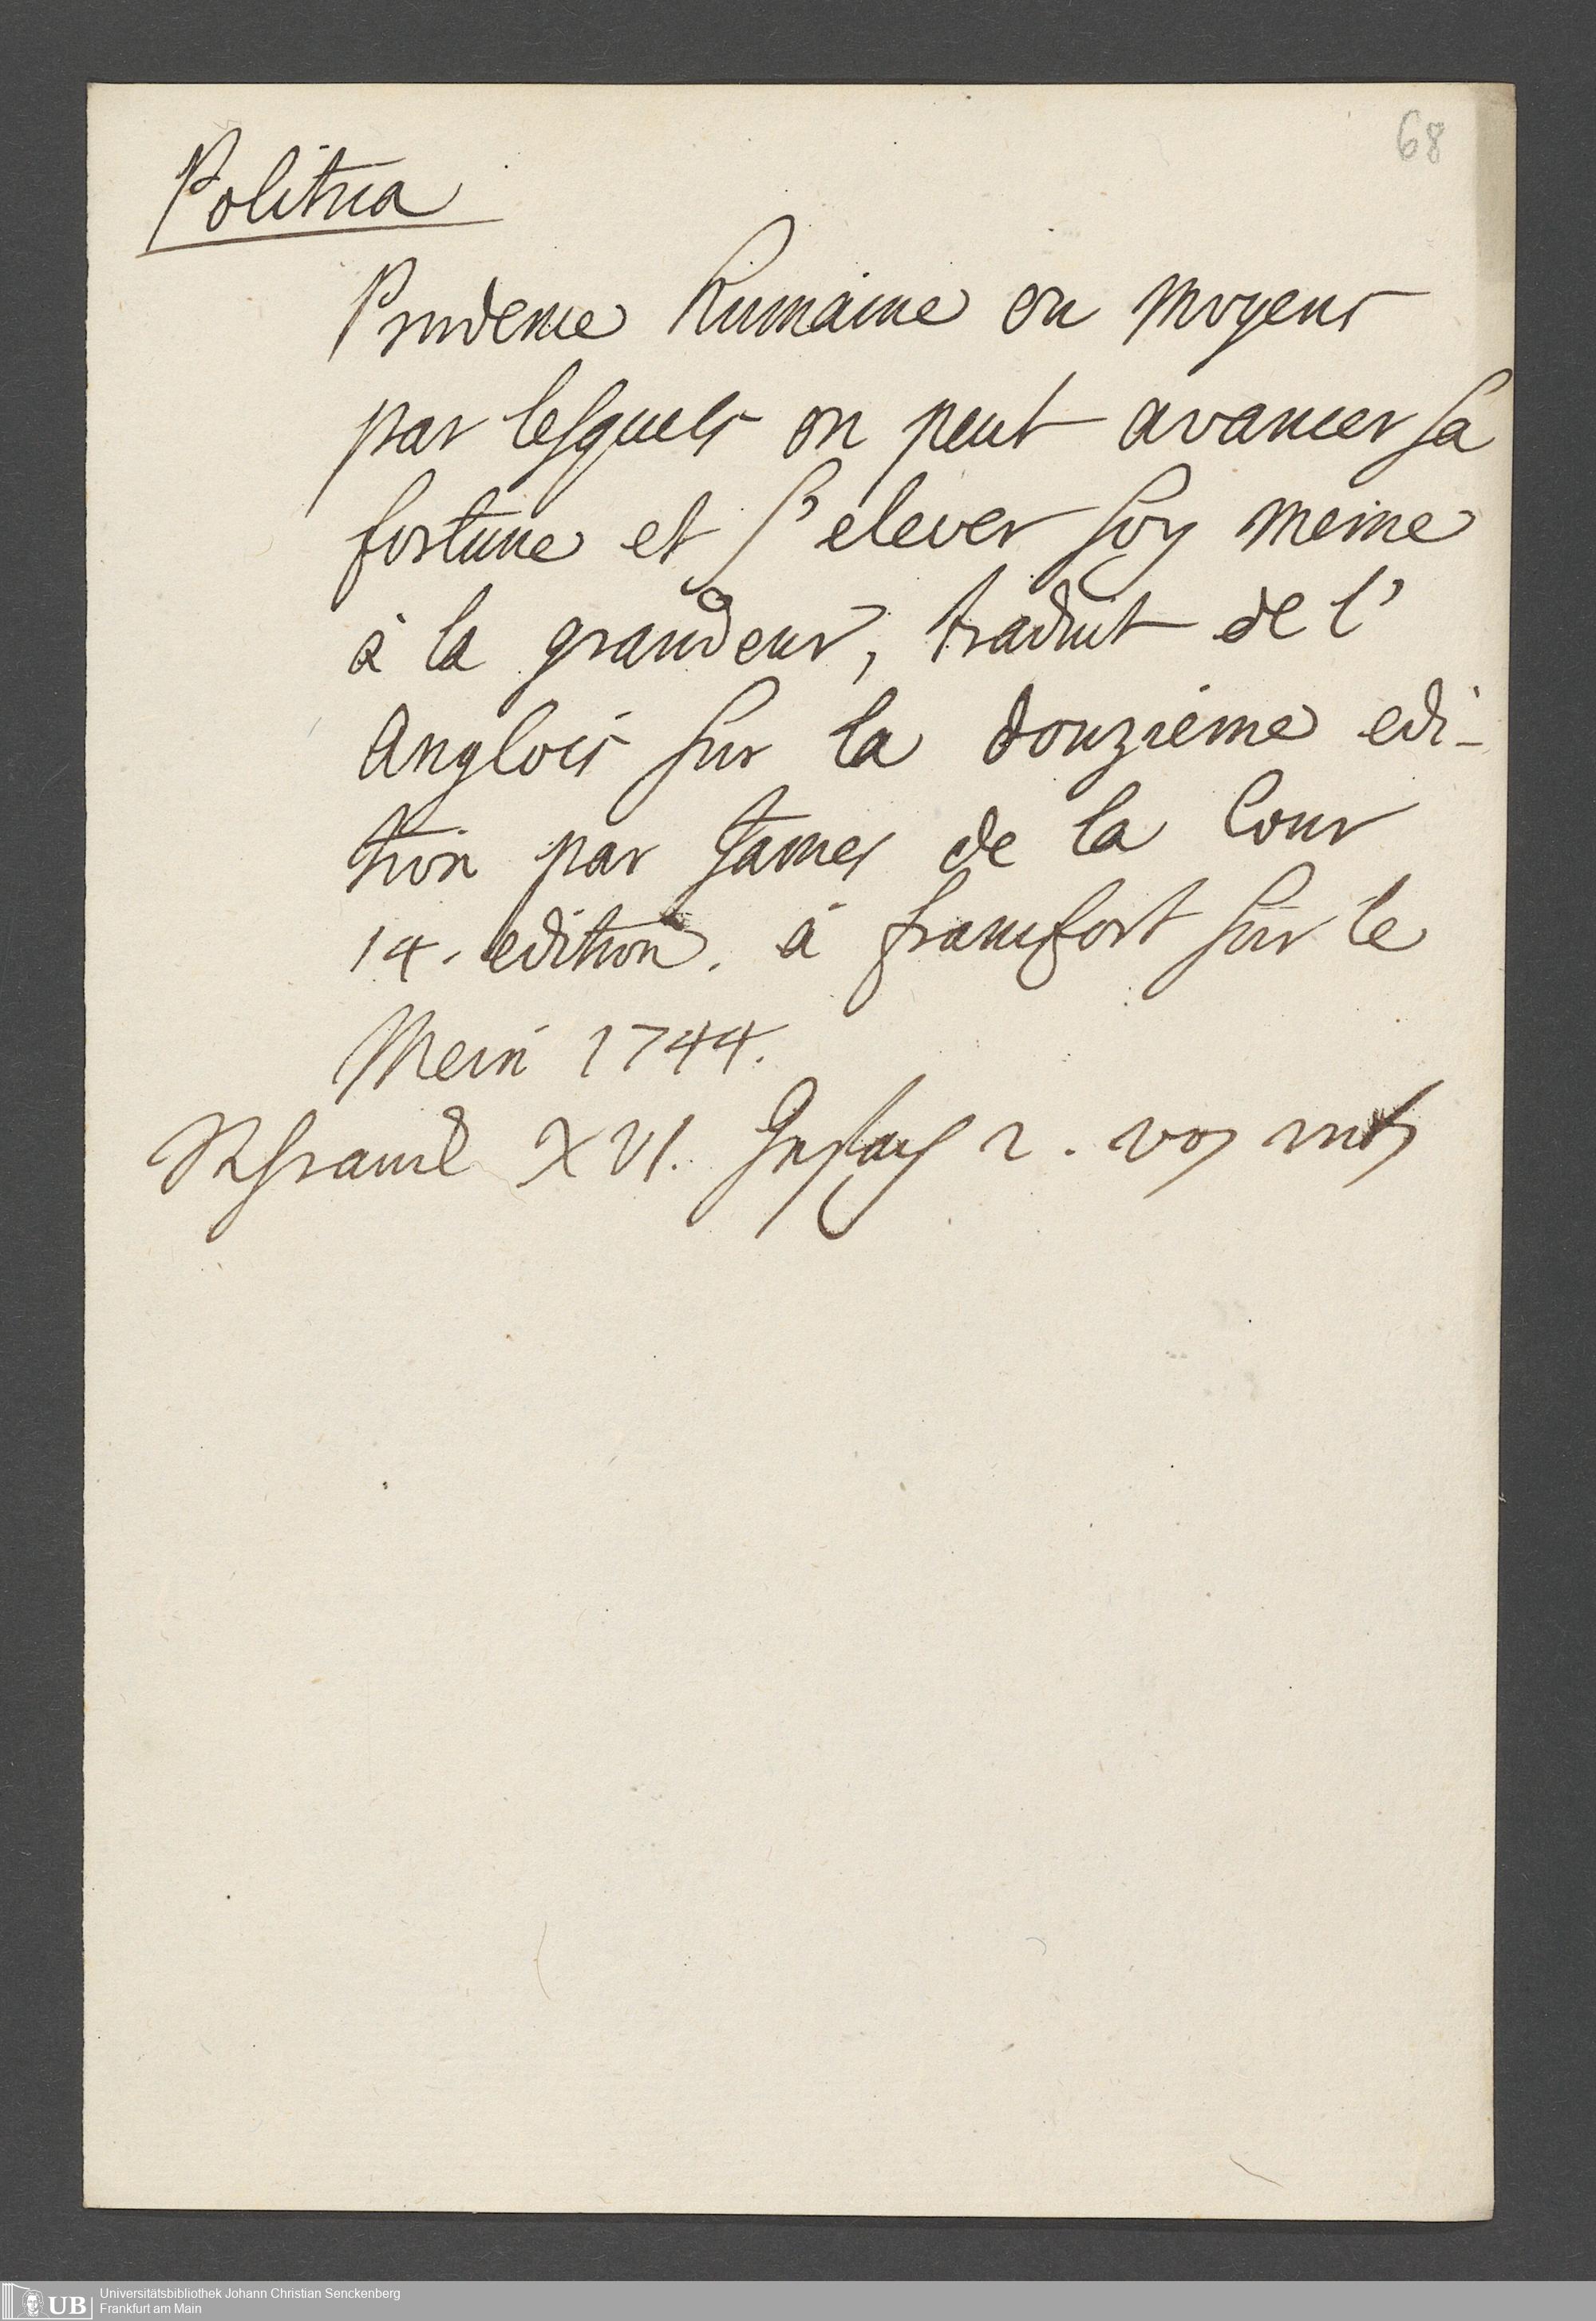 68
Politica
Prudence humaine ou moyens
par lesquels on peut avancer sa
fortune et s'elever soy meme
à la grandeur, traduit de l'
Anglois sur la douzieme edi-
tion par James de la Cour
14. edition. à francfort sur le
Mein 1744.
XVI. 2. von
UB Universitätsbibliothek Johann Christian Senckenberg
Frankfurt am Main